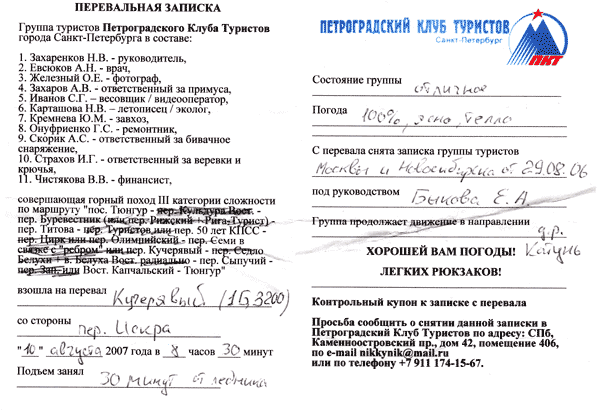 ПЕРЕВАЛЬНАЯ ЗАПИСКА
Группа туристов Петроградского Клуба Туристов
города Санкт-Петербурга в составе:
1. Захаренков Н.В. - руководитель,
2. Евсюков А.Н. - врач,
3. Железный О.Е. - фотограф,
4. Захаров А.В. - ответственный за примуса,
5. Иванов С.Г. – весовщик / видеооператор,
6. Карташова Н.В. – летописец / эколог,
7. Кремнева Ю.М. - завхоз,
8. Онуфриенко Г.С. - ремонтник,
9. Скорик А.С. - ответственный за бивачное
снаряжение,
10. Страхов И.Г. - ответственный за веревки и
крючья,
11. Чистякова В.В. - финансист,
совершающая горный поход III категории сложности
по маршруту "пос. Тюнгур - пер. Культура Вост. -
пер. Буревестник (или пер. Рижский + Рига-Турист)
- пер. Титова - пер. Туристов или пер. 50 лет КПСС -
пер. Цирк или пер. Олимпийский - пер. Семи в
связке с "ребром" или пер. Кучерявый - пер. Седло
Белухи + в. Белуха Вост. радиально - пер. Сыпучий -
пер. Зап. или Вост. Капчальский - Тюнгур"
взошла на перевал Кучерявый (1Б, 3200)
со стороны пер. Искра
"10" августа 2007 года в 8 часов 30 минут
Подъем занял 30 минут от ледника
ПЕТРОГРАДСКИЙ КЛУБ ТУРИСТОВ
Санкт-Петербург
ПКТ
Состояние группы отличное
Погода 100%, ясно, тепло
С перевала снята записка группы туристов
Москвы и Новосибирска от 29.08.06
под руководством Быкова Е.А
Группа продолжает движение в направлении
д.р.
Катунь
ХОРОШЕЙ ВАМ ПОГОДЫ!
ЛЕГКИХ РЮКЗАКОВ!
Контрольный купон к записке с перевала
Просьба сообщить о снятии данной записки в
Петроградский Клуб Туристов по адресу: СПб,
Каменноостровский пр., дом 42, помещение 406,
по e-mail nikkynik@mail.ru
или по телефону +7 911 174-15-67.